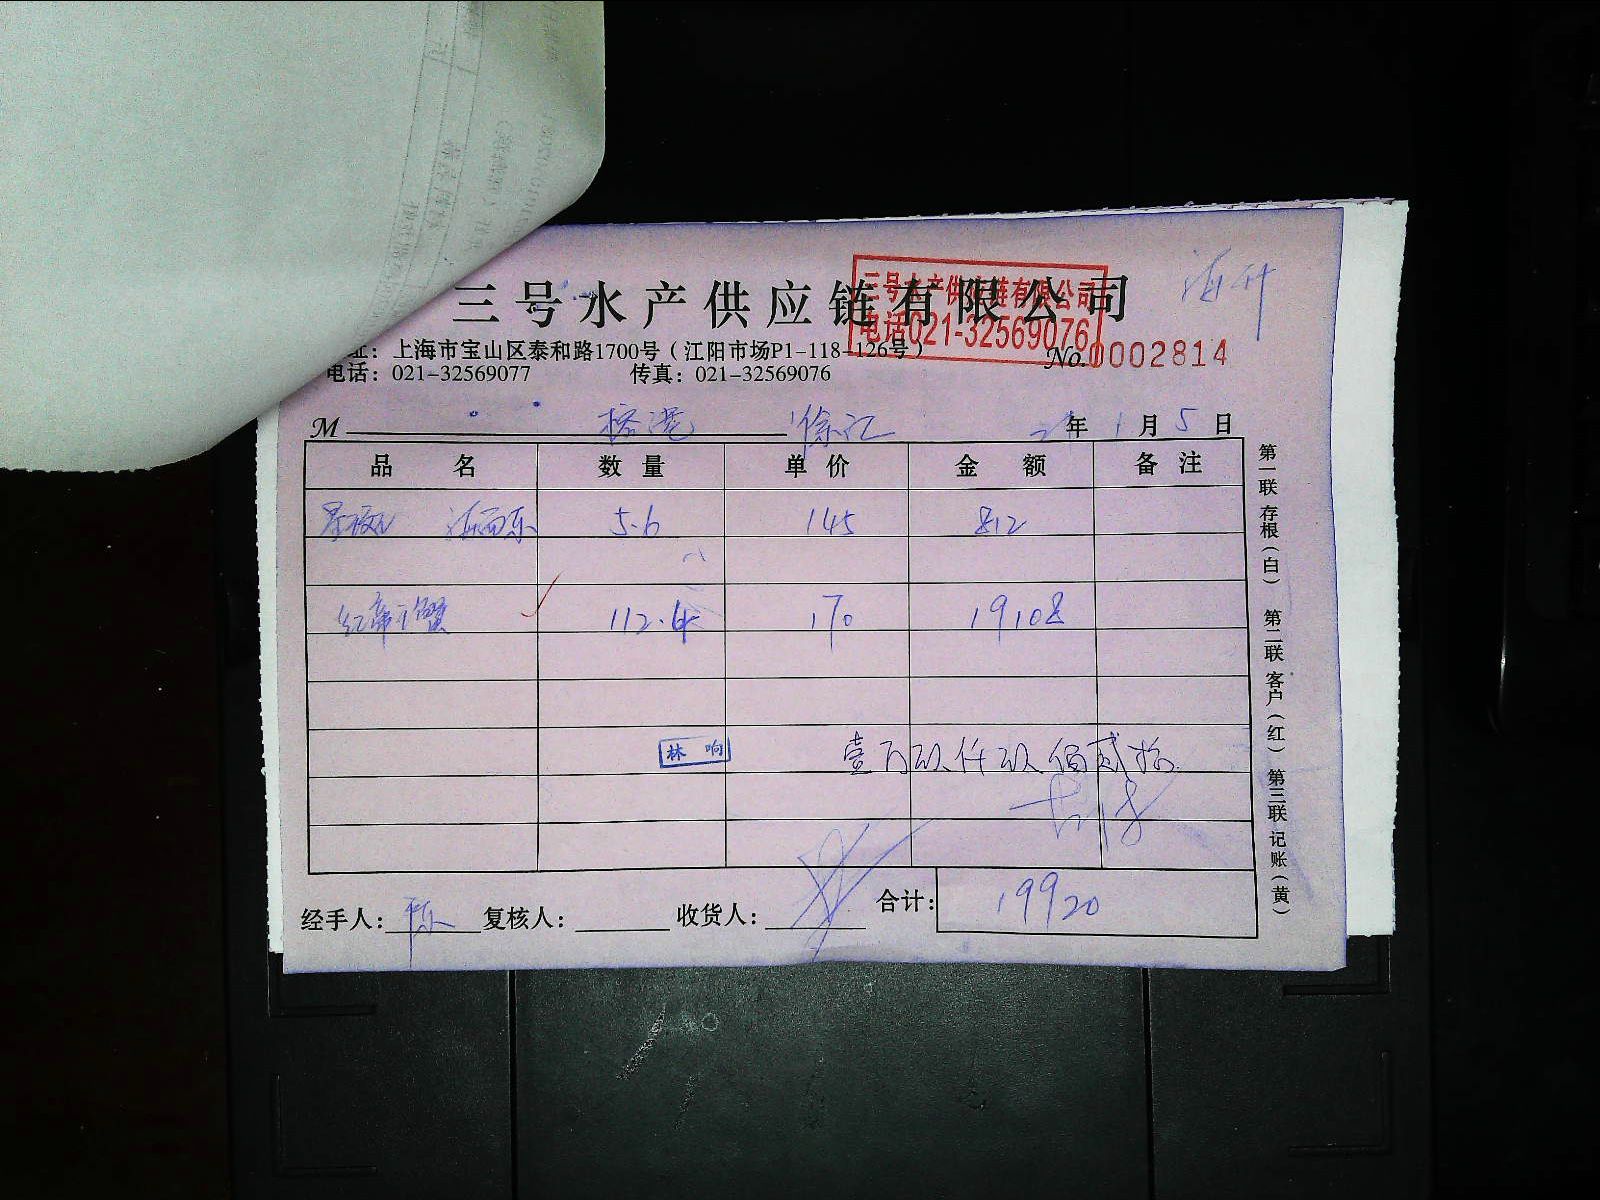 三号水产供应链有限公司
三号水产供应链有限公司
电话021-32569076
海升
址：上海市宝山区泰和路1700号（江阳市场P1-118-126号）
No.0002814
电话：021-32569077 传真：021-32569076
M 榕港 徐汇 21年1月5日
品名 数量 单价 金额 备注
5.6 145 812
红帝王蟹 112.4 170 19108
林响
壹万玖仟玖佰贰拾
经手人：陈 复核人： 收货人： 合计：19920
第一联 存根（白） 第二联 客户（红） 第三联 记账（黄）